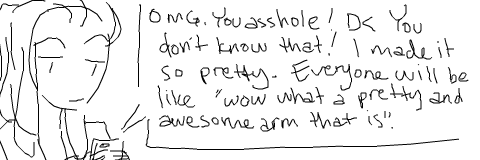 OMG. You asshole! D< You
don't know that! I made it
so pretty. Everyone will be
like "wow what a pretty and
awesome arm that is".